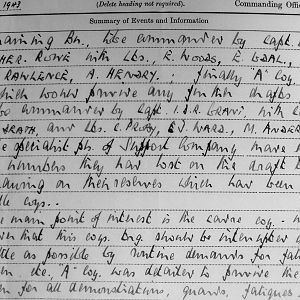 1943.
(Delete heading not required).
Commanding Offic
Summary of Events and Information
raining Bn., like commanded by Capt.
HER. ROWE with Lts., E. WOODS, E. GEAL,
RAWLENCE, A. HENDRY. finally 'A' Coy.
which would provide any further drafts
be commanded by Capt. I.D.R. GRANT, with
and Lts. C. PROBY, E.J. WARD, M. ANDER
e specialist pls. of Support Company have
numbers they had lost on the draft
drawing on their reserves which had been
le coys.
e main point of interest is the cadre coy.
en that this coys. trg. should be interrupted
tle as possible by routine demands for fat
en etc., 'A' coy. was detailed to provide the
en for all demonstrations, guards, fatigues